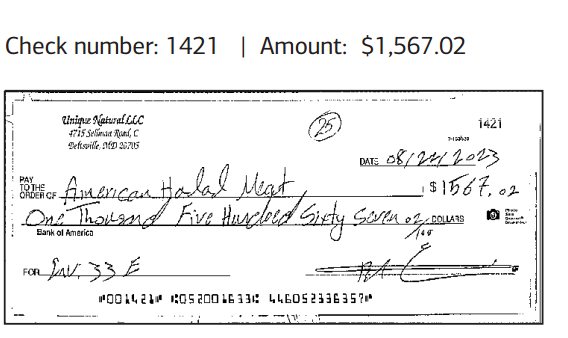 Check number: 1421 | Amount: $1,567.02
Unique Natural LLC
4715 Sellman Road, C
Beltsville, MD 20705
25
1421
DATE 08/24/2023
PAY TO THE ORDER OF American Halal Meat $1567.02
One Thousand Five Hundred Sixty Seven 02/100 DOLLARS
Bank of America
FOR Inv. 33 E
⑈001421⑈ ⑆052001633⑆ 446052336357⑈